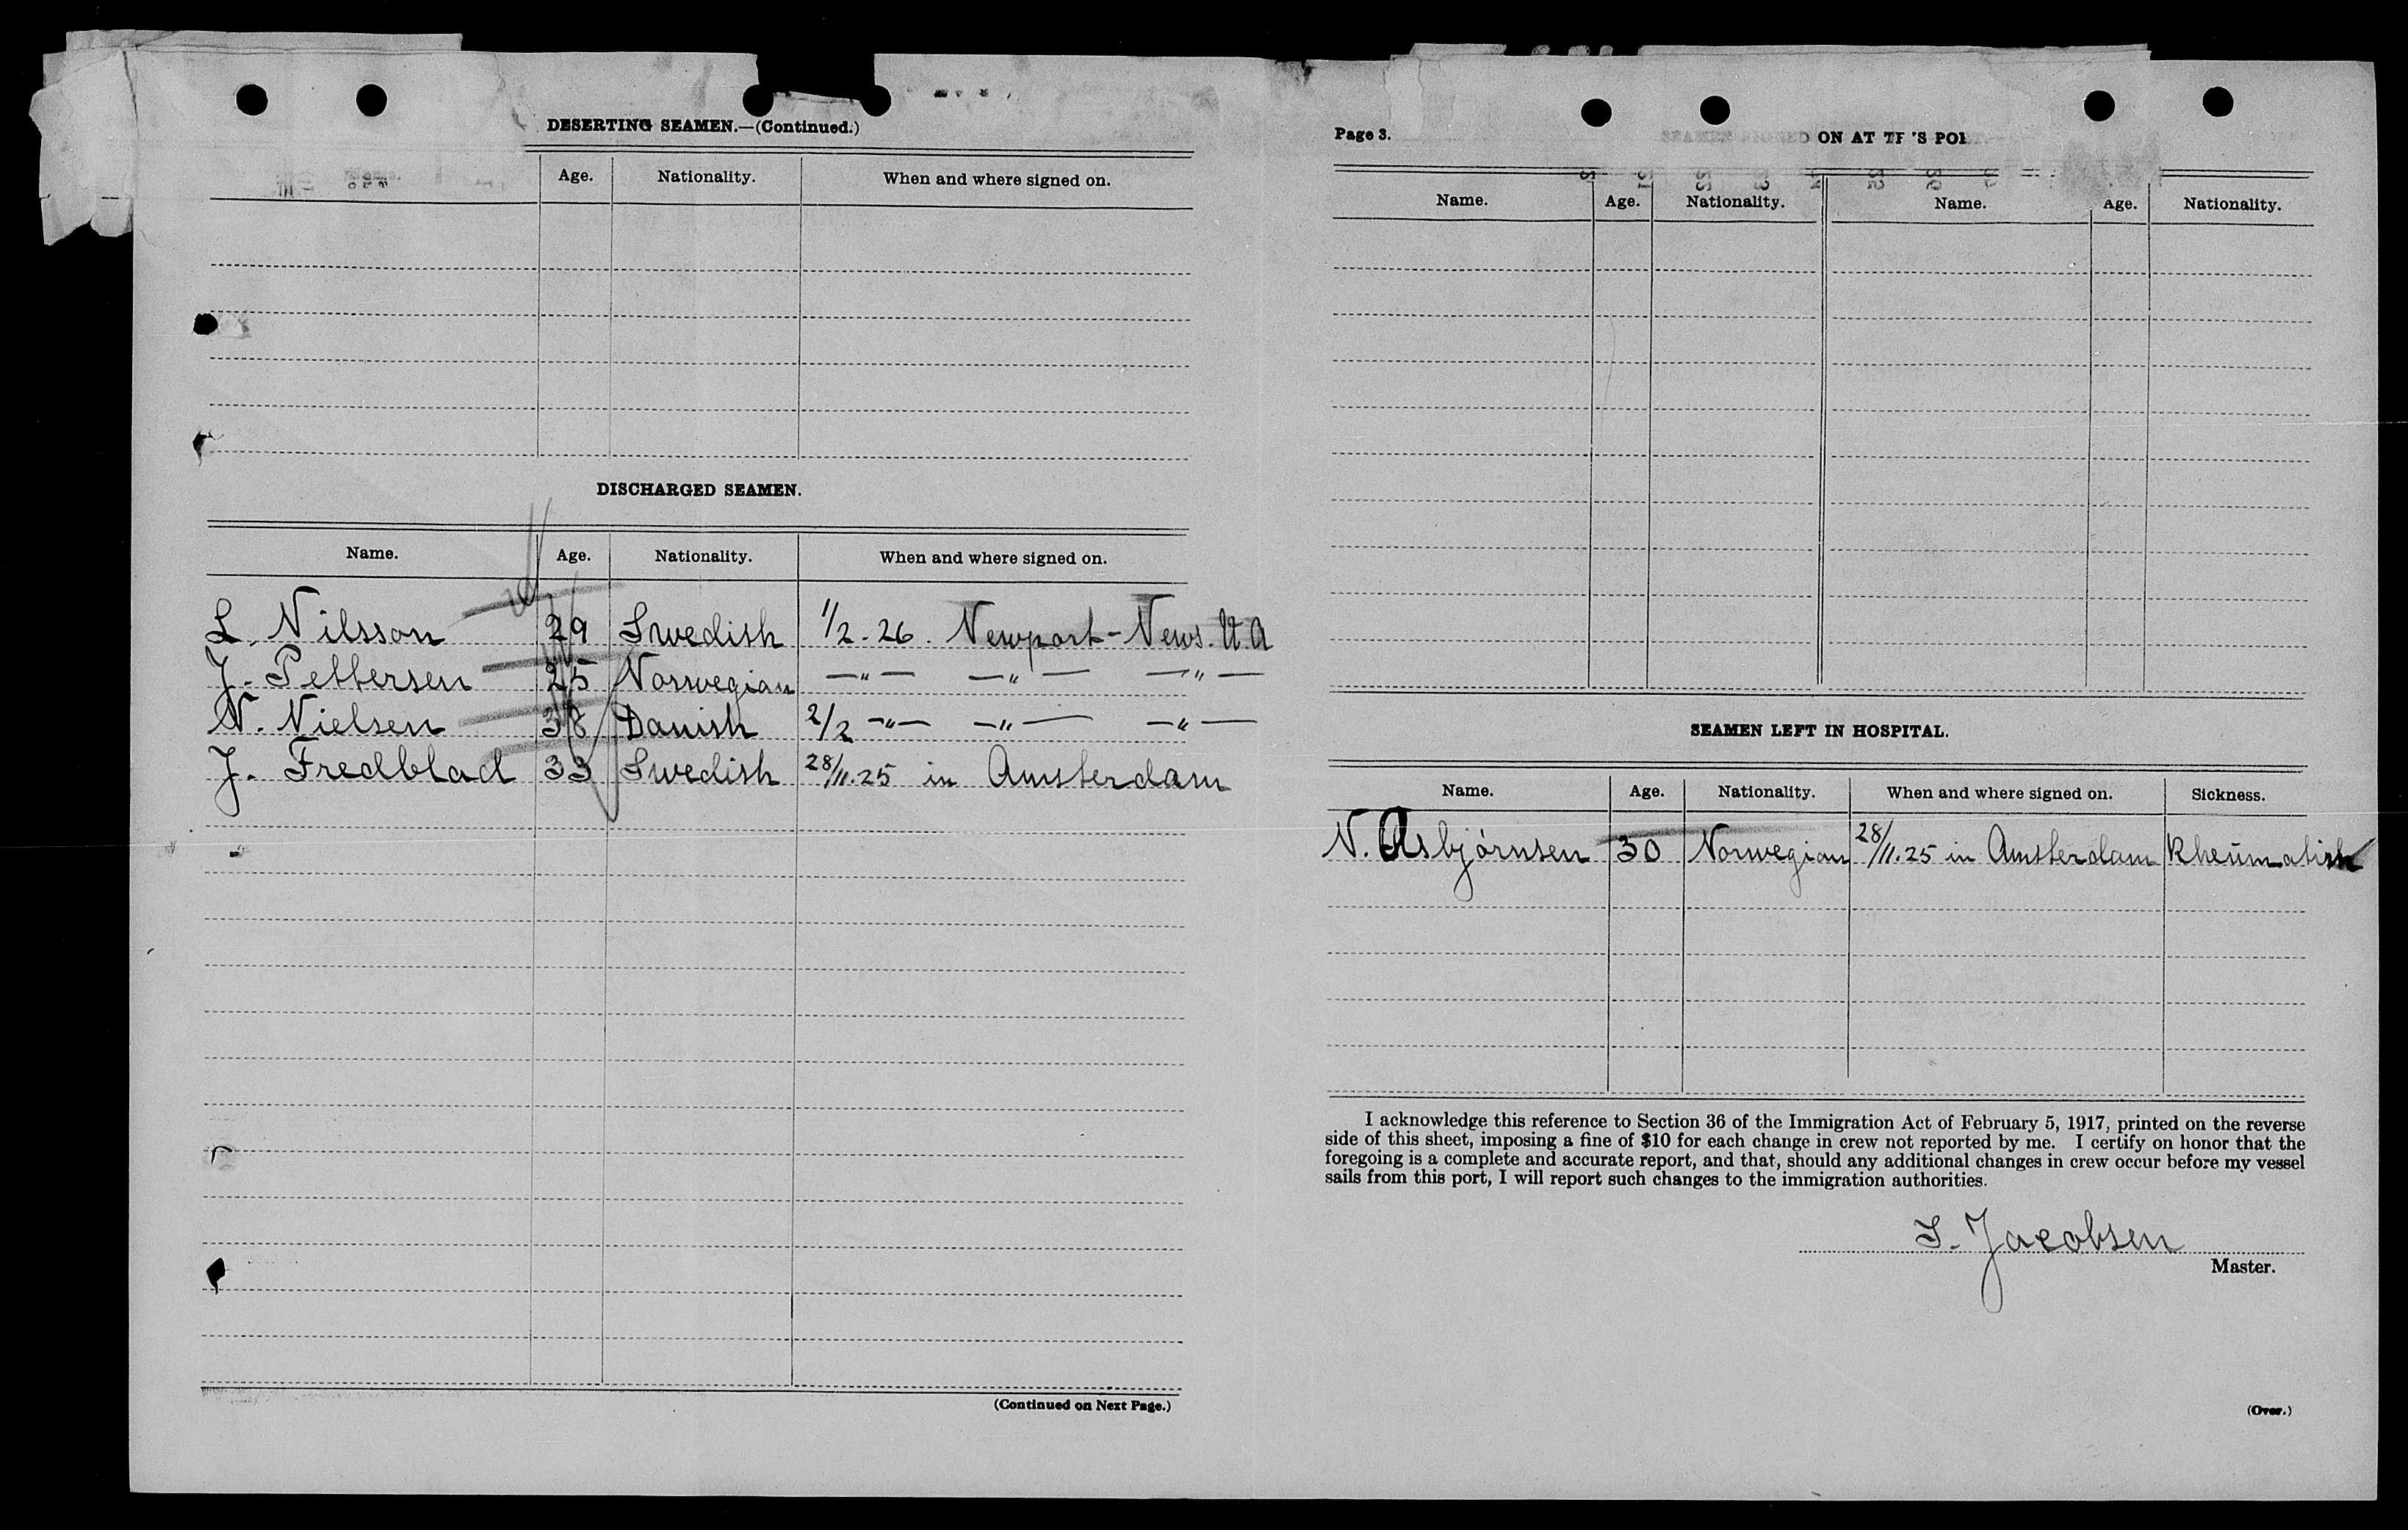 DESERTING SEAMEN.—(Continued.)
Age. Nationality. When and where signed on.
DISCHARGED SEAMEN.
Name. Age. Nationality. When and where signed on.
L. Nilsson 29 Swedish 1/2-26. Newport-News. U.A
J. Pettersen 25 Norwegian —"— —"— —"—
N. Nielsen 38 Danish 2/2 —"— —"— —"—
J. Fredblad 33 Swedish 28/11.25 in Amsterdam
(Continued on Next Page.)
Page 3.
SEAMEN SIGNED ON AT
Name. Age. Nationality. Name. Age. Nationality.
SEAMEN LEFT IN HOSPITAL.
Name. Age. Nationality. When and where signed on. Sickness.
N. Asbjørnsen 30 Norwegian 28/11.25 in Amsterdam
I acknowledge this reference to Section 36 of the Immigration Act of February 5, 1917, printed on the reverse
side of this sheet, imposing a fine of $10 for each change in crew not reported by me. I certify on honor that the
foregoing is a complete and accurate report, and that, should any additional changes in crew occur before my vessel
sails from this port, I will report such changes to the immigration authorities.
Jacobsen
Master.
(Over.)